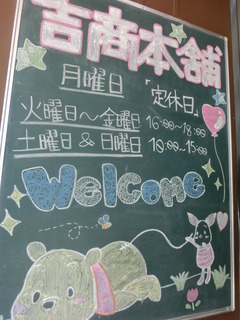 吉商本舗
月曜日 「定休日」
火曜日〜金曜日 16:00〜18:00
土曜日&日曜日 10:00〜15:00
Welcome